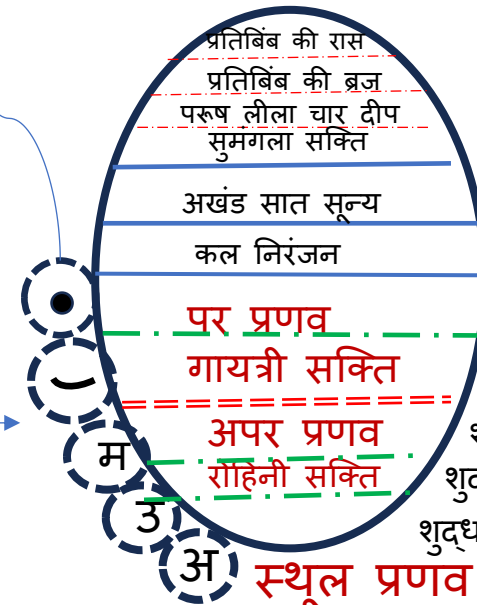 प्रतिबिंब की रास
प्रतिबिंब की ब्रज
परूष लीला चार दीप
सुमंगला सक्ति
अखंड सात सून्य
कल निरंजन
पर प्रणव
गायत्री सक्ति
अपर प्रणव
म
रोहिनी सक्ति
उ
अ
स्थूल प्रणव